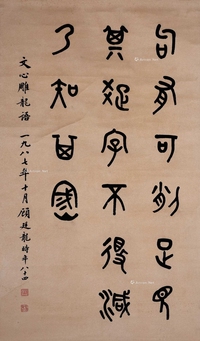 句有可削足見
其疏字不得減
乃知其密
文心雕龍語 一九八七年十月 顧廷龍時年八十四